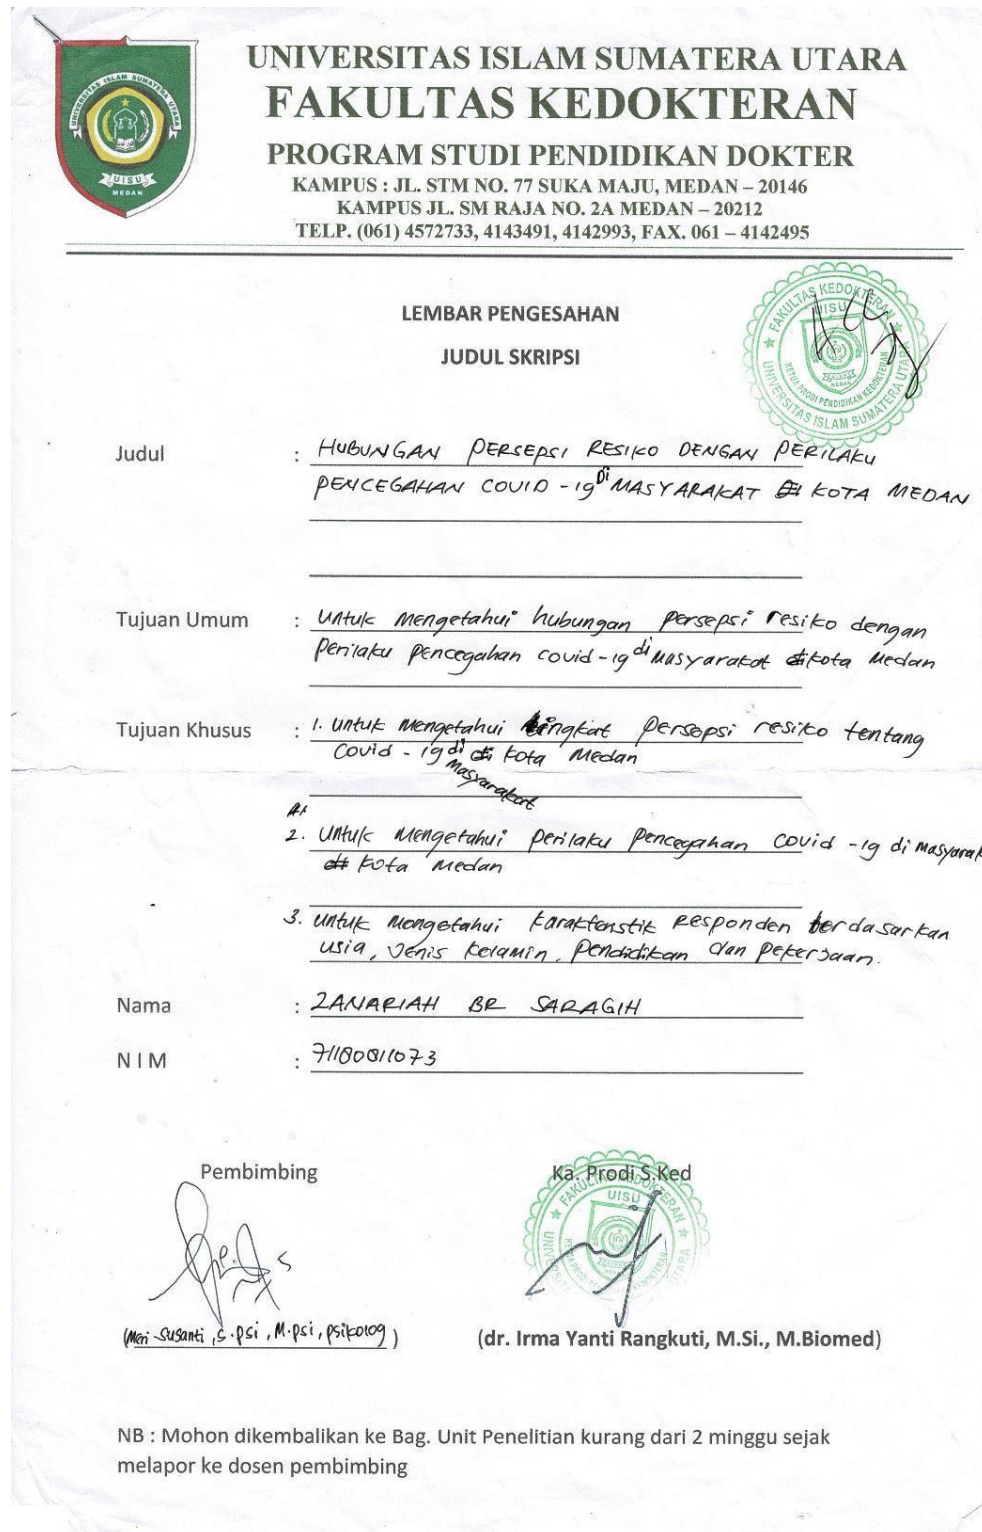 UNIVERSITAS ISLAM SUMATERA UTARA
UISU
MEDAN
UNIVERSITAS ISLAM SUMATERA UTARA
FAKULTAS KEDOKTERAN
PROGRAM STUDI PENDIDIKAN DOKTER
KAMPUS : JL. STM NO. 77 SUKA MAJU, MEDAN – 20146
KAMPUS JL. SM RAJA NO. 2A MEDAN – 20212
TELP. (061) 4572733, 4143491, 4142993, FAX. 061 – 4142495
LEMBAR PENGESAHAN
JUDUL SKRIPSI
FAKULTAS KEDOKTERAN
UISU
KETUA PRODI PENDIDIKAN KEDOKTERAN
UNIVERSITAS ISLAM SUMATERA UTARA
Judul : HUBUNGAN PERSEPSI RESIKO DENGAN PERILAKU
PENCEGAHAN COVID-19 Di MASYARAKAT KOTA MEDAN
Tujuan Umum : Untuk Mengetahui hubungan persepsi resiko dengan
Perilaku pencegahan covid-19 di Masyarakat kota Medan
Tujuan Khusus : 1. Untuk Mengetahui tingkat persepsi resiko tentang
Covid-19 di Masyarakat Kota Medan
2. Untuk Mengetahui Perilaku Pencegahan Covid-19 di Masyarak
Kota Medan
3. Untuk Mengetahui Karakteristik Responden berdasarkan
usia, Jenis Kelamin, Pendidikan dan Pekerjaan.
Nama : ZANARIAH BR SARAGIH
N I M : 71180811073
Pembimbing
Ka. Prodi S.Ked
FAKULTAS KEDOKTERAN
UISU
(Meri Susanti, S.psi, M.psi, psikolog)
(dr. Irma Yanti Rangkuti, M.Si., M.Biomed)
NB : Mohon dikembalikan ke Bag. Unit Penelitian kurang dari 2 minggu sejak
melapor ke dosen pembimbing